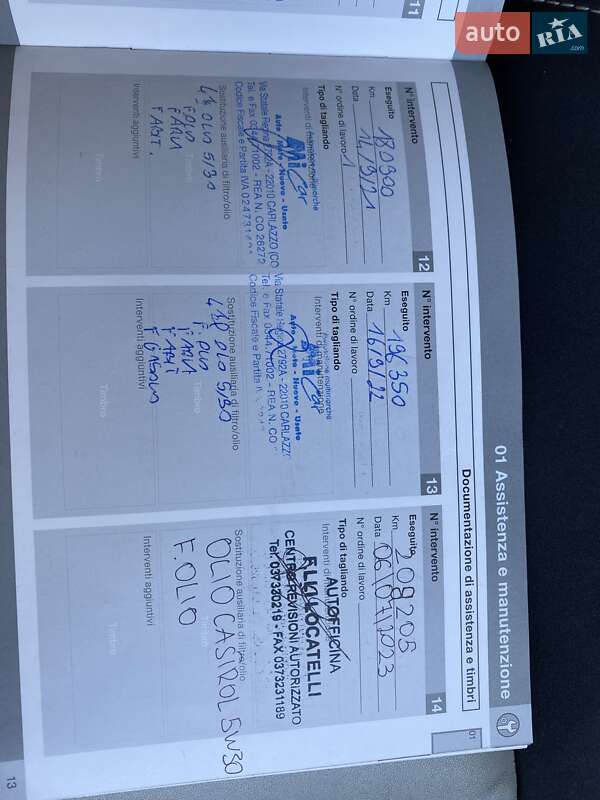 auto RIA.com
11
01 Assistenza e manutenzione
Documentazione di assistenza e timbri
01
N° intervento 12
Eseguito
Km 180300
Data 14/9/21
N° ordine di lavoro 1
Tipo di tagliando
Auto - Moto - Nuove - Usato
Via Statale Regina 2792A - 22010 CARLAZZO (CO
REA N. CO
Codice Fiscale e Partita IVA
Sostituzione ausiliaria di filtro/olio
OLIO 5/30
F. OLIO
F. ARIA
Timbro
Interventi aggiuntivi
Timbro
N° intervento 13
Eseguito
Km 196350
Data 16/9/22
N° ordine di lavoro
Tipo di tagliando
Interventi di manutenzione
Auto - Moto - Nuove - Usato
Via Statale Regina 2792A - 22010 CARLAZZ
REA N. CO
Codice Fiscale e Partita
Sostituzione ausiliaria di filtro/olio
OLIO 5/30
F. OLIO
F. ARIA
Timbro
Interventi aggiuntivi
F. GASOLIO
Timbro
N° intervento 14
Eseguito
Km 209205
Data 06/07/2023
N° ordine di lavoro
Tipo di tagliando
Interventi di
AUTOFFICINA
LOCATELLI
CENTRO REVISIONI AUTORIZZATO
FAX 0373231189
Sostituzione ausiliaria di filtro/olio
OLIO CASTROL 5W30
F. OLIO
Timbro
Interventi aggiuntivi
Timbro
13